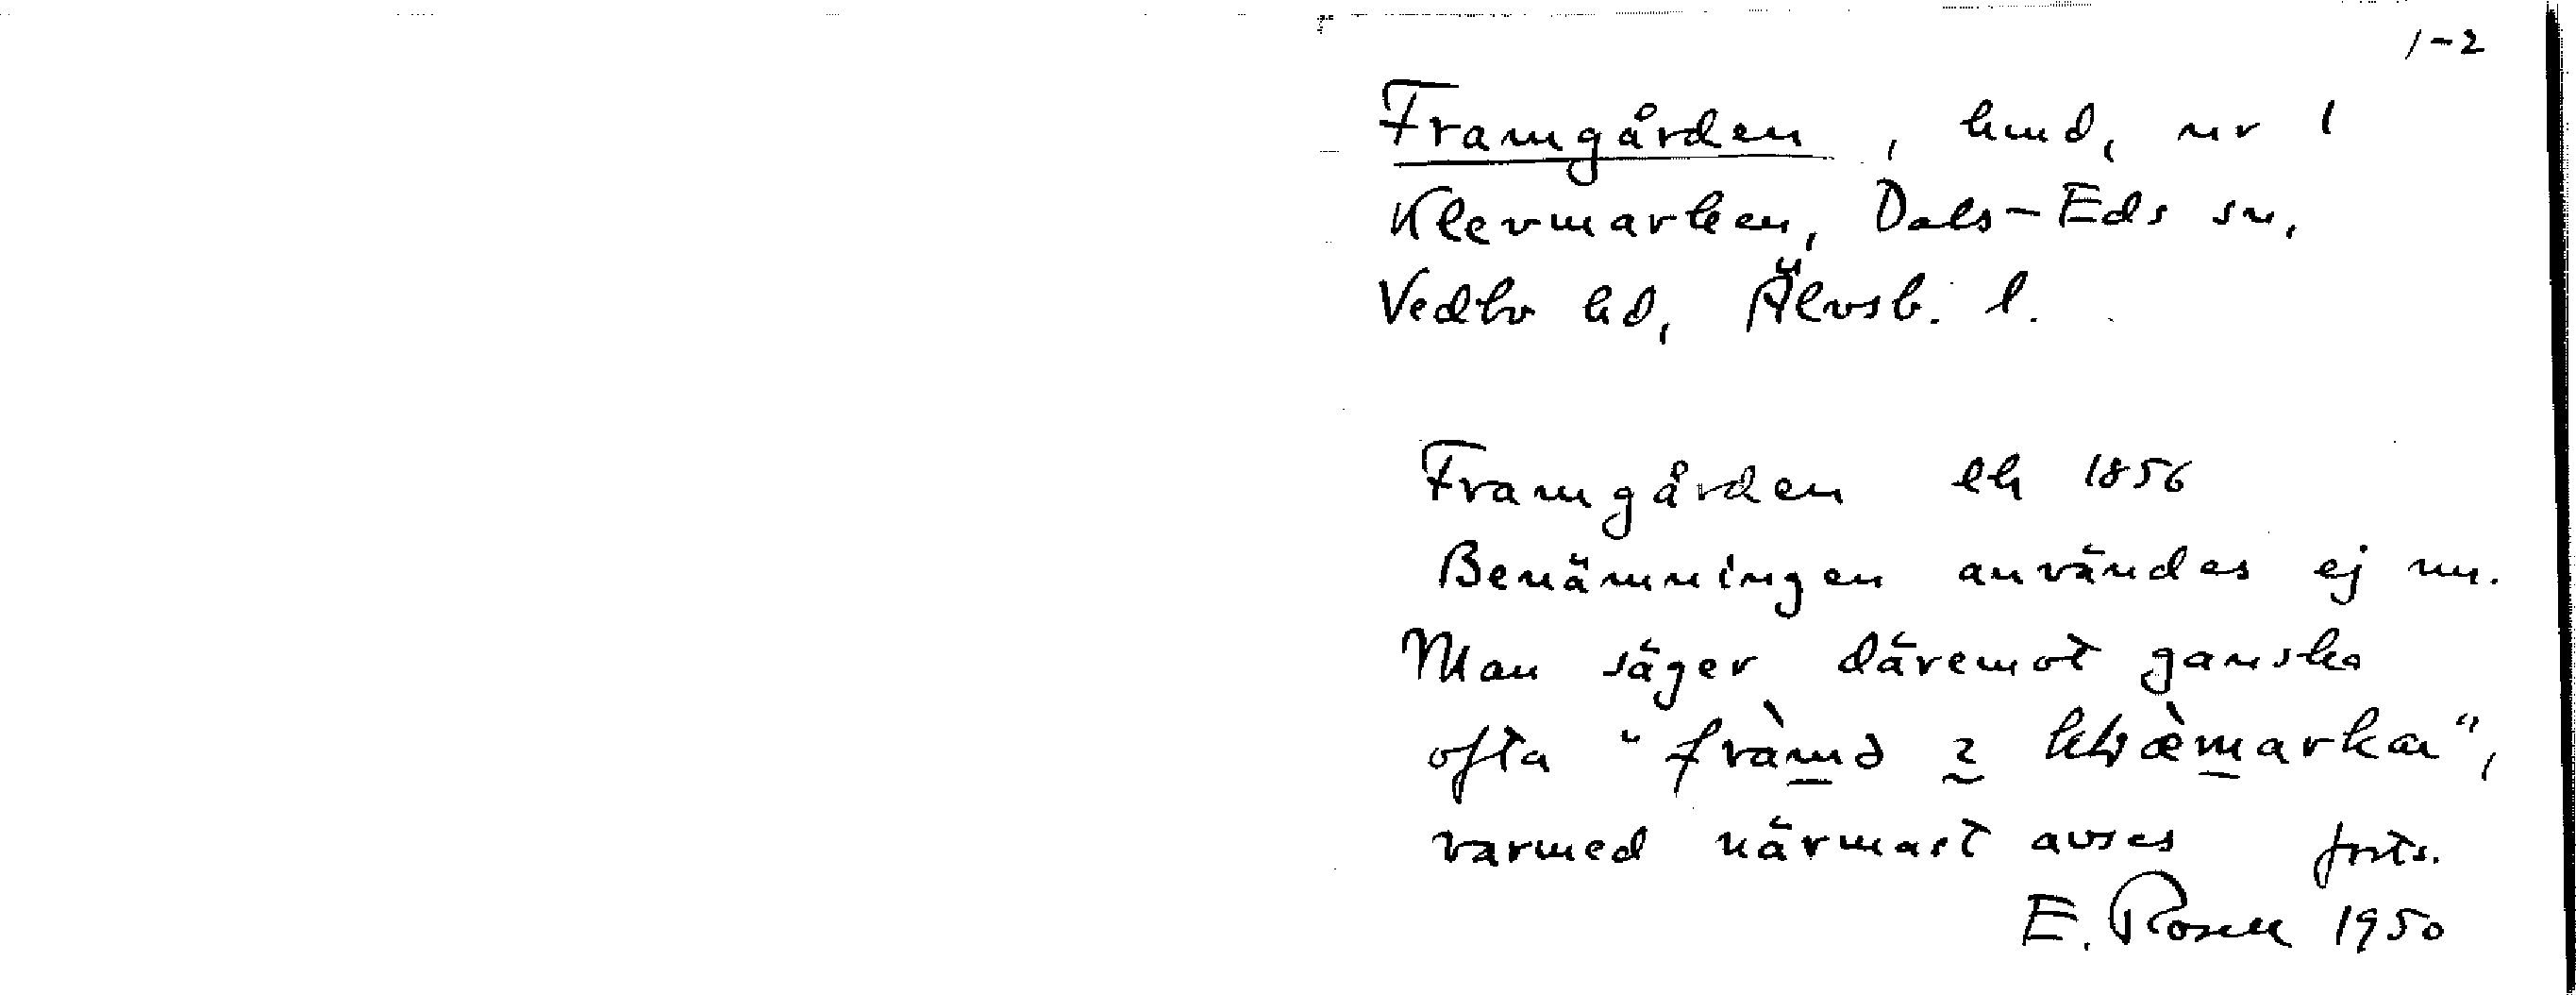 1-2
Framgården, hmd, nr 1
Klevmarken, Dals-Eds sn,
Vedbo hd, Älvsb. l.
Framgården lk 1856
Benämningen användes ej nu.
Man säger däremot ganska
ofta "
varmed närmast avses forts.
E. Rosell 1950